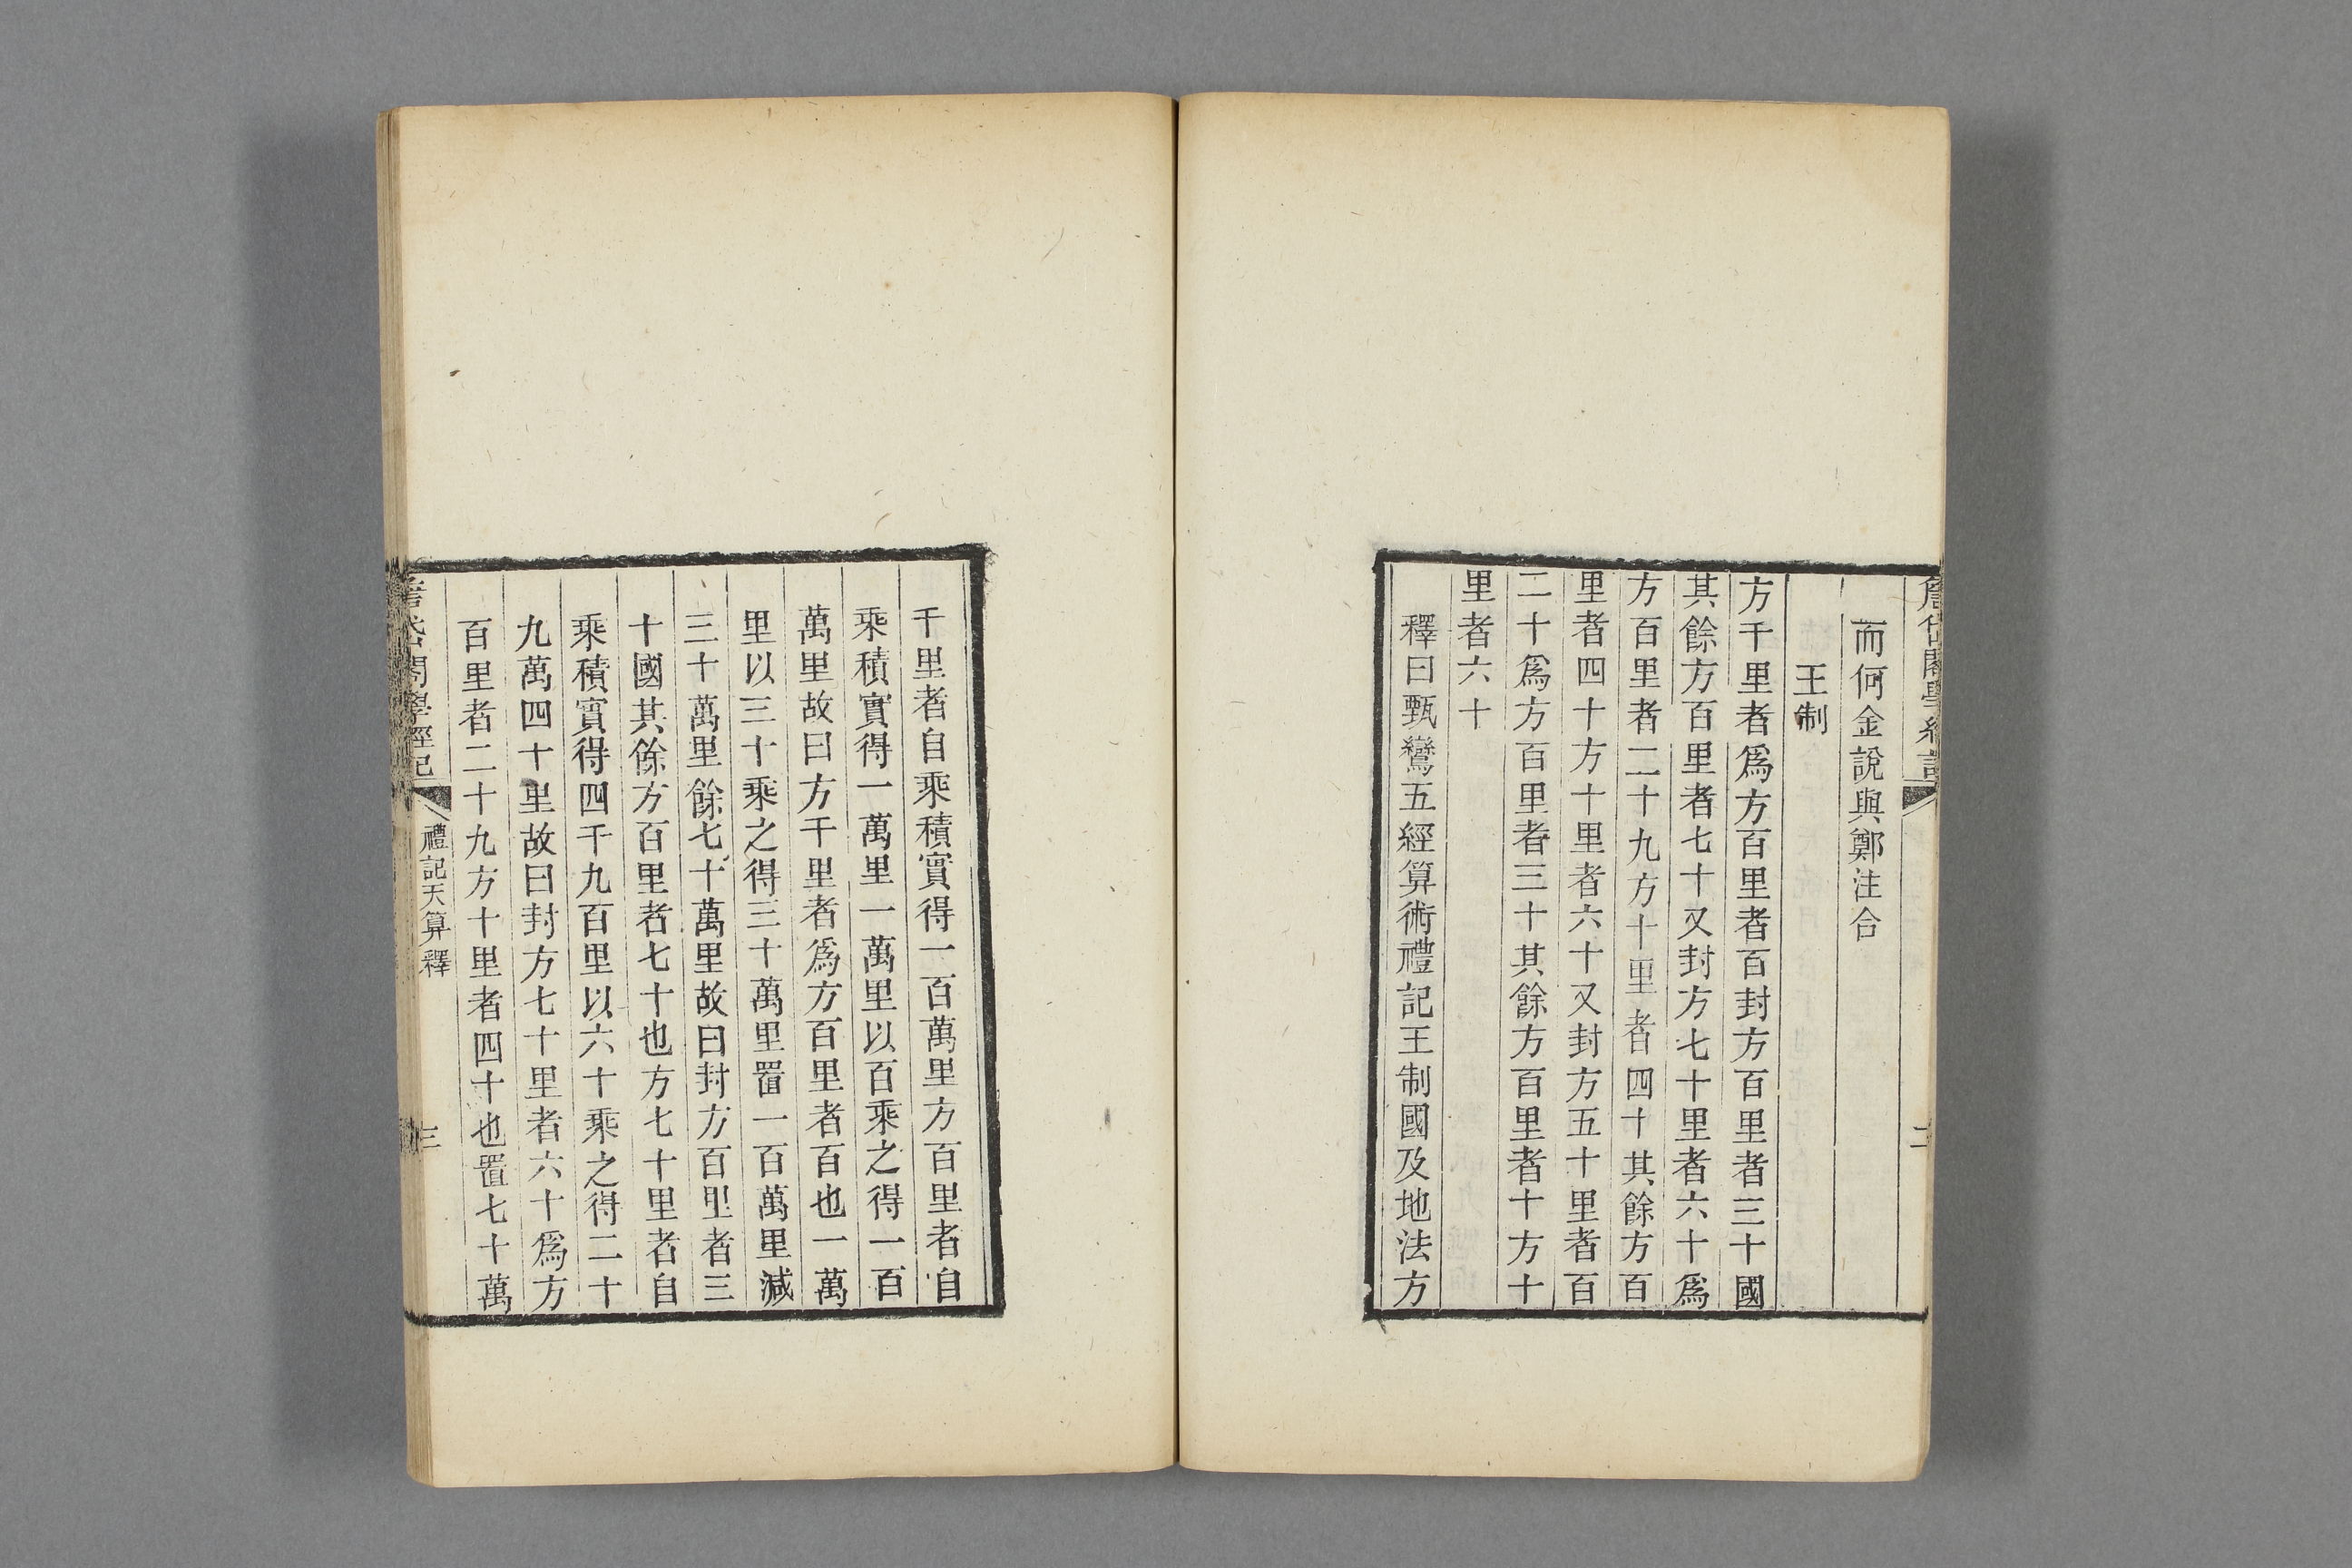 而何金說與鄭注合
王制
方千里者爲方百里者百封方百里者三十國
其餘方百里者七十又封方七十里者六十爲
方百里者二十九方十里者四十其餘方百
里者四十方十里者六十又封方五十里者百
二十爲方百里者三十其餘方百里者十方十
里者六十
釋曰甄鸞五經算術禮記王制國及地法方
千里者自乘積實得一百萬里方百里者自
乘積實得一萬里一萬里以百乘之得一百
萬里故曰方千里者爲方百里者百也一萬
里以三十乘之得三十萬里置一百萬里減
三十萬里餘七十萬里故曰封方百里者三
十國其餘方百里者七十也方七十里者自
乘積實得四千九百里以六十乘之得二十
九萬四十里故曰封方七十里者六十爲方
百里者二十九方十里者四十也置七十萬
禮記天算釋
三